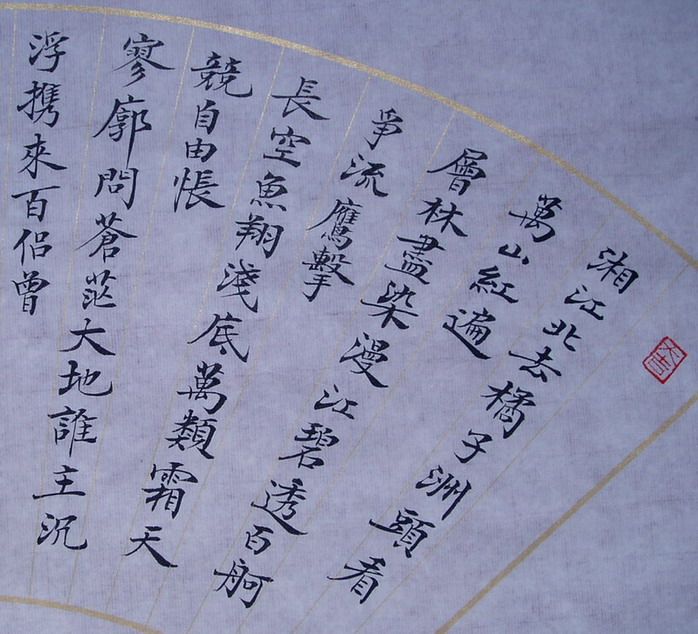 湘江北去橘子洲頭看
萬山紅遍
層林盡染漫江碧透百舸
爭流鷹擊
長空魚翔淺底萬類霜天
競自由悵
寥廓問蒼茫大地誰主沉
浮携來百侣曾